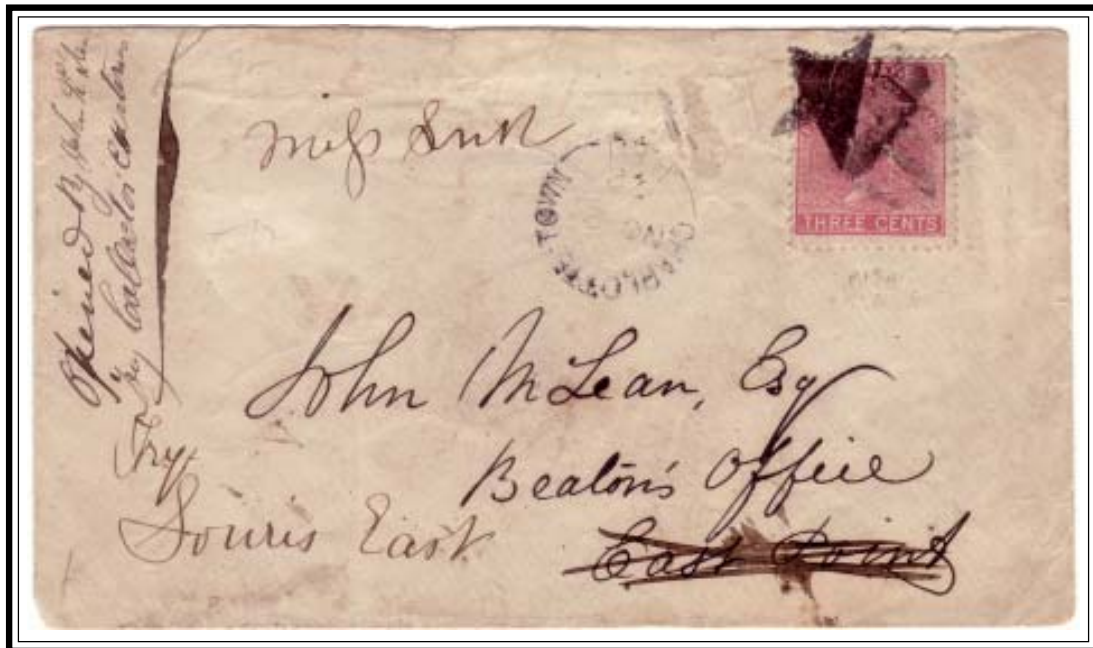 Opened By John McLean
Try Collector Customs
Miss Sent
CHARLOTTETOWN
THREE CENTS
John McLean, Esq
Beaton's Office
East Point
Try
Souris East